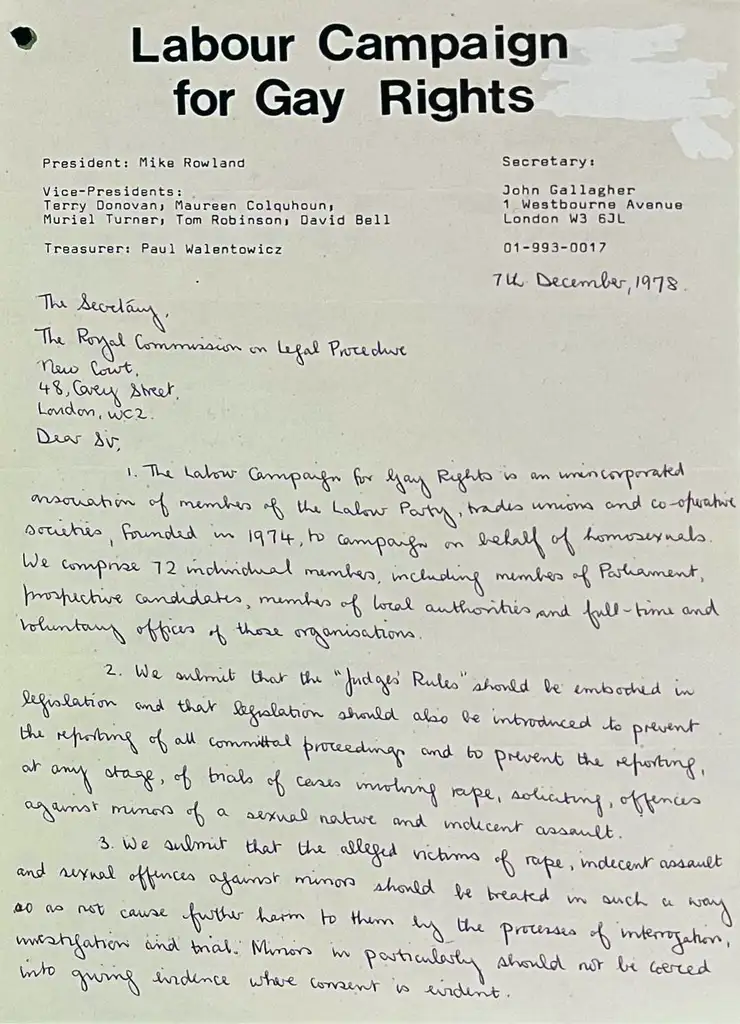 Labour Campaign
for Gay Rights
President: Mike Rowland
Vice-Presidents:
Terry Donovan, Maureen Colquhoun,
Muriel Turner, Tom Robinson, David Bell
Treasurer: Paul Walentowicz
Secretary:
John Gallagher
1 Westbourne Avenue
London W3 6JL
01-993-0017
7th December, 1978.
The Secretary,
The Royal Commission on Legal Procedure
New Court,
48, Carey Street,
London, WC2.
Dear Sir,
1. The Labour Campaign for Gay Rights is an unincorporated
association of members of the Labour Party, trades unions and co-operative
societies, founded in 1974, to campaign on behalf of homosexuals.
We comprise 72 individual members, including members of Parliament,
prospective candidates, members of local authorities and full-time and
voluntary offices of those organisations.
2. We submit that the "Judges' Rules" should be embodied in
legislation and that legislation should also be introduced to prevent
the reporting of all committal proceedings and to prevent the reporting,
at any stage, of trials of cases involving rape, soliciting, offences
against minors of a sexual nature and indecent assault.
3. We submit that the alleged victims of rape, indecent assault
and sexual offences against minors should be treated in such a way
so as not cause further harm to them by the processes of interrogation,
investigation and trial. Minors in particularly should not be coerced
into giving evidence where consent is evident.